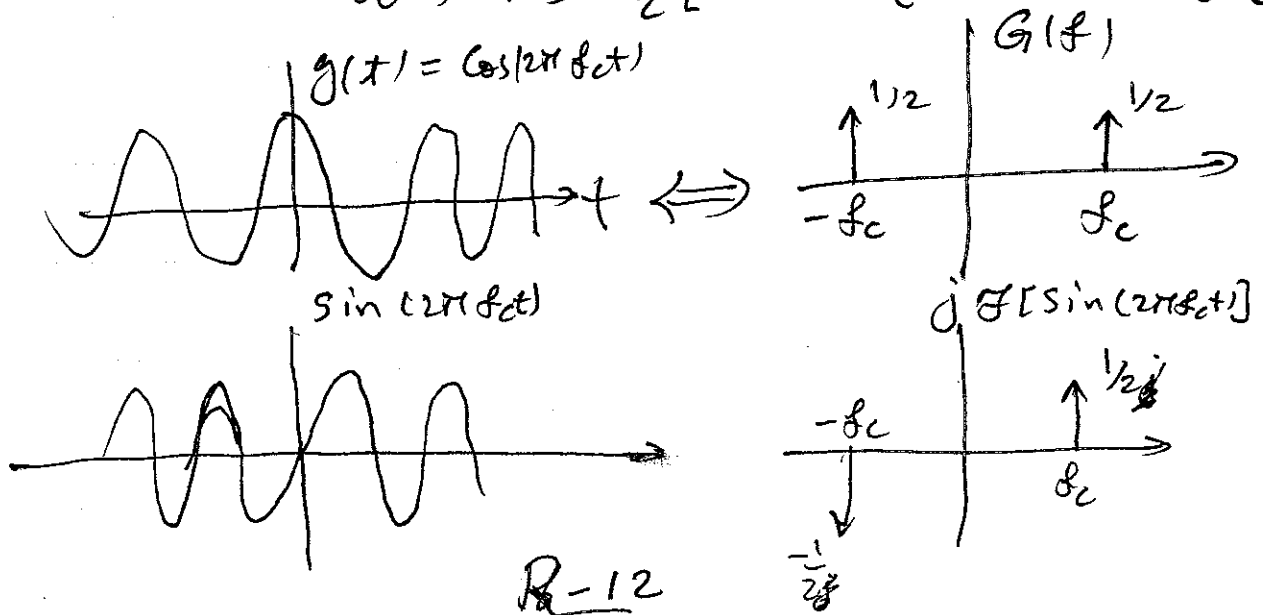 g(t) = Cos(2π fct)
G(f)
1/2
1/2
t ⟺
-fc
fc
sin (2π fct)
j F[sin(2π fct)]
1/2
-fc
fc
-1/2
R-12